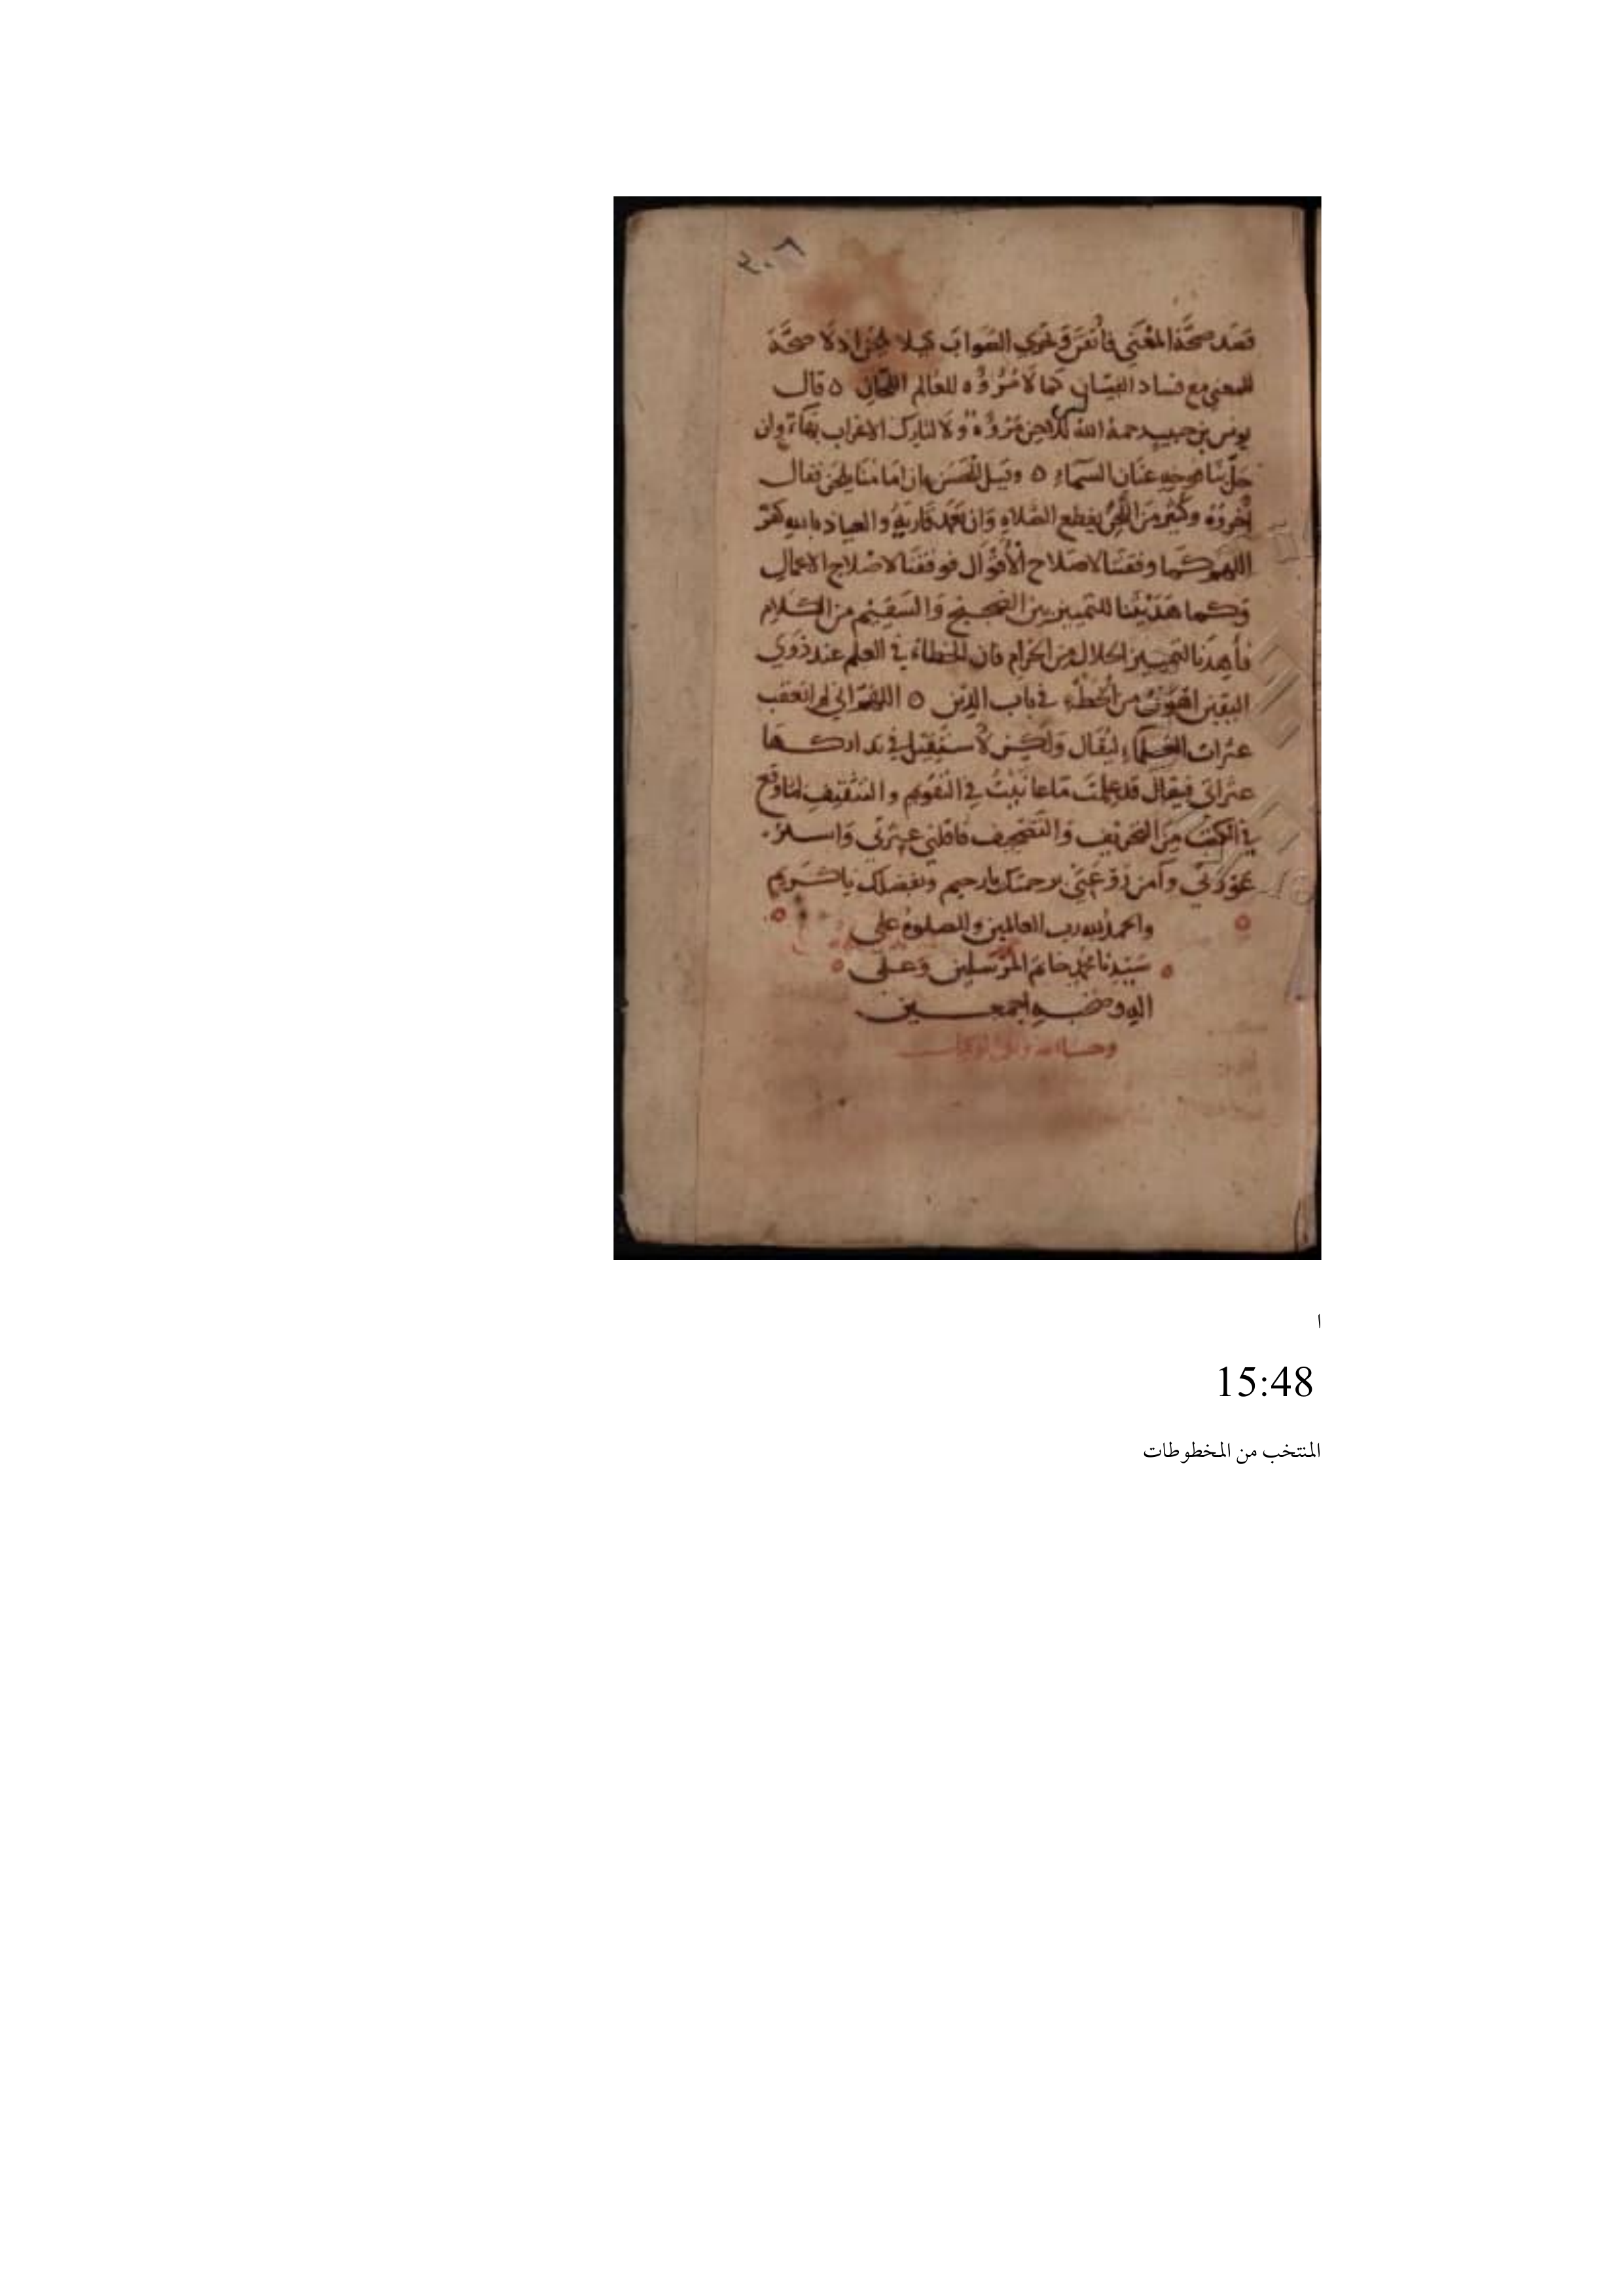 ٢٠٨
قصد صحة المعنى فأتقن وتحرى الصواب كيلا يلحن اذ لا صحة
للمعنى مع فساد البيان كما لا مُرُوَّه للعالم اللحان ٥ قال
يونس بن حبيب رحمه الله ليس للاحن مُرُوَّة ولا لتارك الاعراب بهاء وان
حك بيافوخه عنان السماء ٥ وقيل للحسن ان امامنا يلحن فقال
أخروه وكثير من اللحن يقطع الصلاه وان تعمد قاريه والعياذ بالله كفر
اللهم كما وفقتنا لاصلاح الأقوال فوفقنا لاصلاح الاعمال
وكما هديتنا للتمييز بين الصحيح والسقيم من الكلام
فأهدنا لتمييز الحلال من الحرام فان الخطاء في العلم عند ذوي
اليقين اهون من الخطاء في باب الدين ٥ اللهم اني لم اتعقب
عثرات العلماء ليقال ولكن لأستقيل في تداركها
عثراتي فيقال قد علمت ما عانيتُ في التقويم والتثقيف لما وقع
في الكتب من التحريف والتصحيف فاقلني عثرتي واستر
عورتي وآمن روعتي برحمتك يا رحيم وبفضلك يا كريم
والحمد لله رب العالمين والصلوة على
سيدنا محمد خاتم المرسلين وعلى
اله وصحبه اجمعين
وحسبنا الله ونعم الوكيل
ا
15:48
المنتخب من المخطوطات